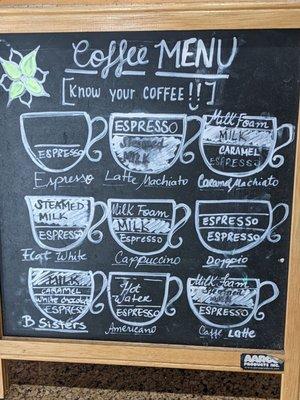 Coffee MENU
[Know your COFFEE!!]
ESPRESSO
Espresso
ESPRESSO
MILK
Latte Machiato
Milk Foam
MILK
CARAMEL
ESPRESSO
Caramel Machiato
STEAMED
MILK
ESPRESSO
Flat White
Milk Foam
MILK
ESPRESSO
Cappuccino
ESPRESSO
ESPRESSO
Doppio
MILK
CARAMEL
White chocolate
ESPRESSO
B Sisters
Hot
Water
ESPRESSO
Americano
Milk Foam
MILK
ESPRESSO
Caffe Latte
AARCO
PRODUCTS INC.